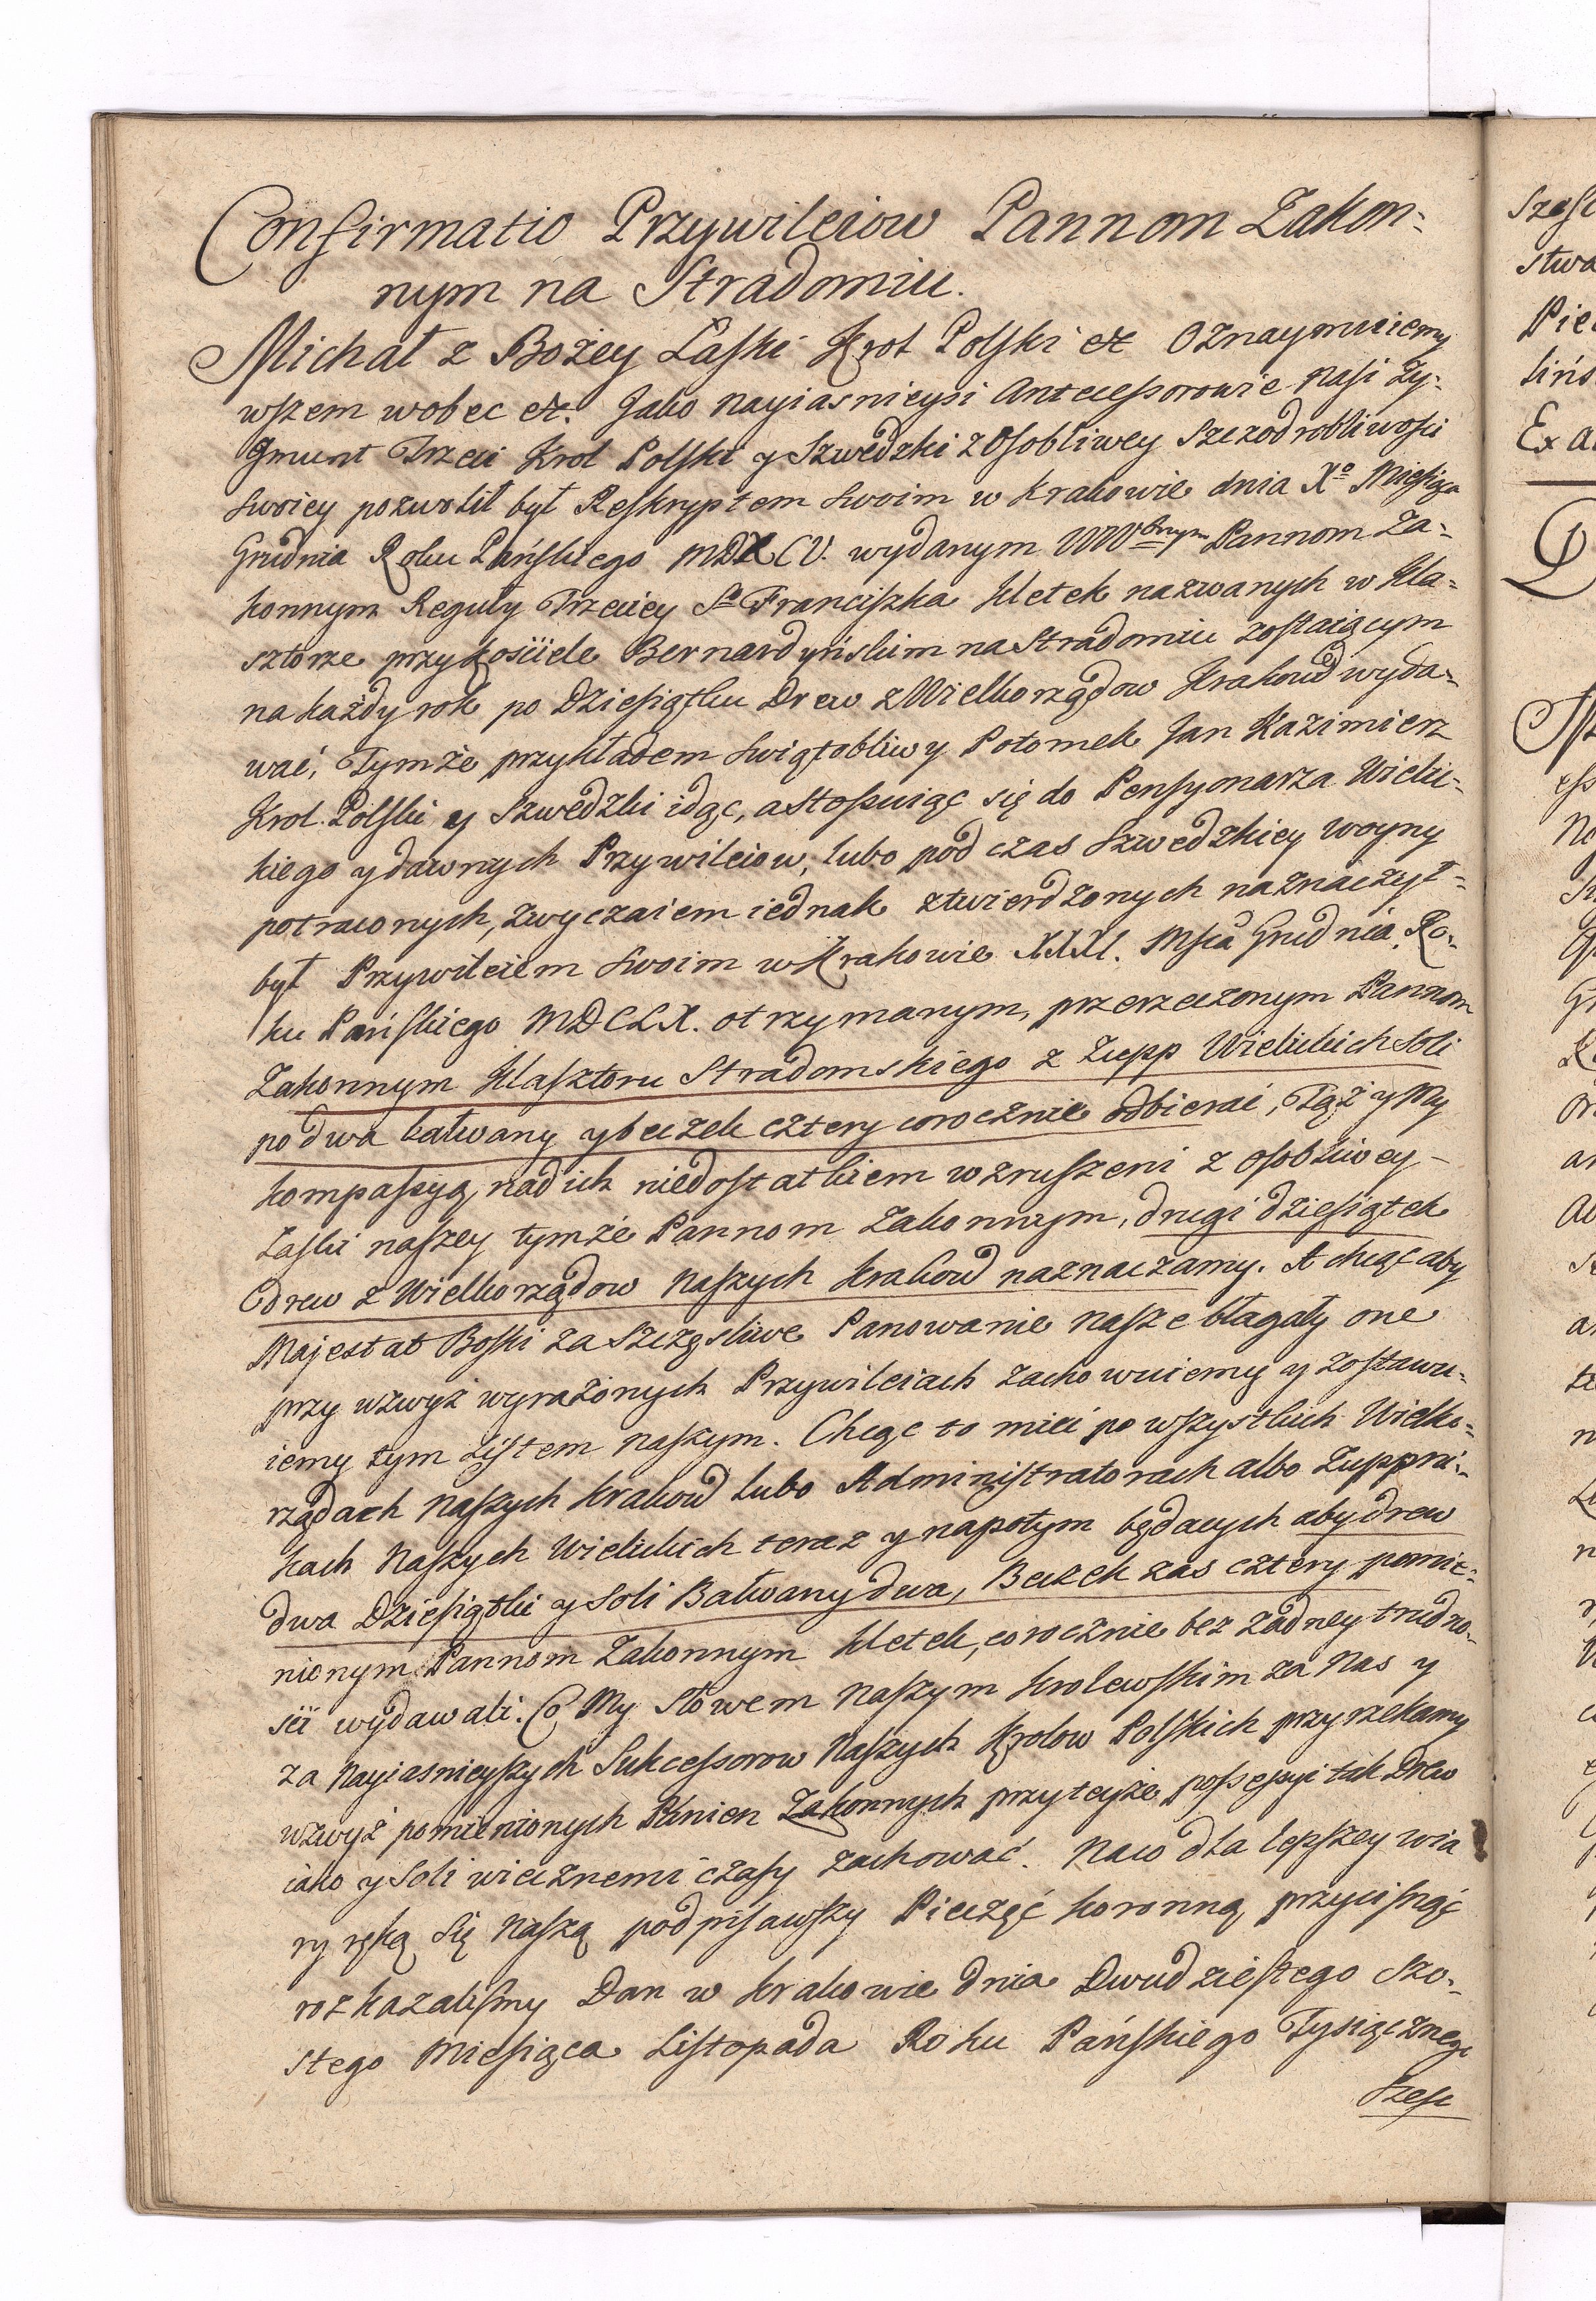 Confirmatio Przywileiow Pannom Zakon-
nym na Stradomiu.
Michał z Bożey Łaski Krol Polski etc Oznaymuiemy
wszem wobec etc. Jako Nayiasnieysi Antecessorowie Nasi Zy-
gmunt Trzeci Krol Polski y Szwedzki z Osobliwey Szczodrobliwosci
swoiey pozwolił był Reskryptem swoim w Krakowie dnia Xo Miesiąca
Grudnia Roku Pańskiego MDXCV. wydanym WWbnym Pannom Za-
konnym Reguły Trzeciey So Franciszka Kletek nazwanych w Kla-
sztorze przy Kościele Bernardyńskim na Stradomiu zostaiącym
na każdy rok po Dziesiątku Drew z Wielkorządow Krakowd wyda-
wać, Tymże przykładem Swiątobliwy Potomek Jan Kazimierz
Krol Polski y Szwedzki idąc, a stosuiąc się do Pensyonarza Wielic-
kiego y dawnych Przywileiow, lubo pod czas Szwedzkiey woyny
potraconych, zwyczaiem iednak ztwierdzonych naznaczył-
był Przywileiem swoim w Krakowie XXXI. Msca Grudnia Ro-
ku Pańskiego MDCLX. otrzymanym, przerzeczonym Pannom
Zakonnym Klasztoru Stradomskiego z Zupp Wielickich Soli
po dwa bałwany y beczek cztery corocznie odbierać, Tąż y My
kompassyą, nad ich niedostatkiem wzruszeni z osobliwey-
Łaski naszey tymże Pannom Zakonnym, drugi dziesiątek
drew z Wielkorządow Naszych Krakowd naznaczamy. A chcąc aby
Majestat Boski za Szczęsliwe Panowanie Nasze błagały one
przy wzwyż wyrażonych Przywileiach zachowuiemy y zostawu-
iemy tym Listem naszym. Chcąc to mieć po wszystkich Wielko-
rządach Naszych Krakowd lubo Administratorach albo Zuppni-
kach Naszych Wielickich teraz y napotym będących aby drew
dwa Dziesiątki y Soli Bałwany dwa, Beczek zas cztery pomie-
nionym Pannom Zakonnym Kletek, corocznie bez żadney trudno-
sci wydawali. Co My Słowem Naszym Krolewskim za Nas y
za Nayiasnieyszych Sukcessorow Naszych Krolow Polskich przyrzekamy
wzwyż pomienionych Panien Zakonnych przy teyże possessyi tak Drew
iako y Soli wiecznemi czasy zachować. Na co dla lepszey wia
ry ręką się Naszą podpisawszy Pieczęć Koronną przycisnąć
rozkazalismy Dan w Krakowie dnia Dwudziestego Szo-
stego Miesiąca Listopada Roku Pańskiego Tysiącznego
Szesc